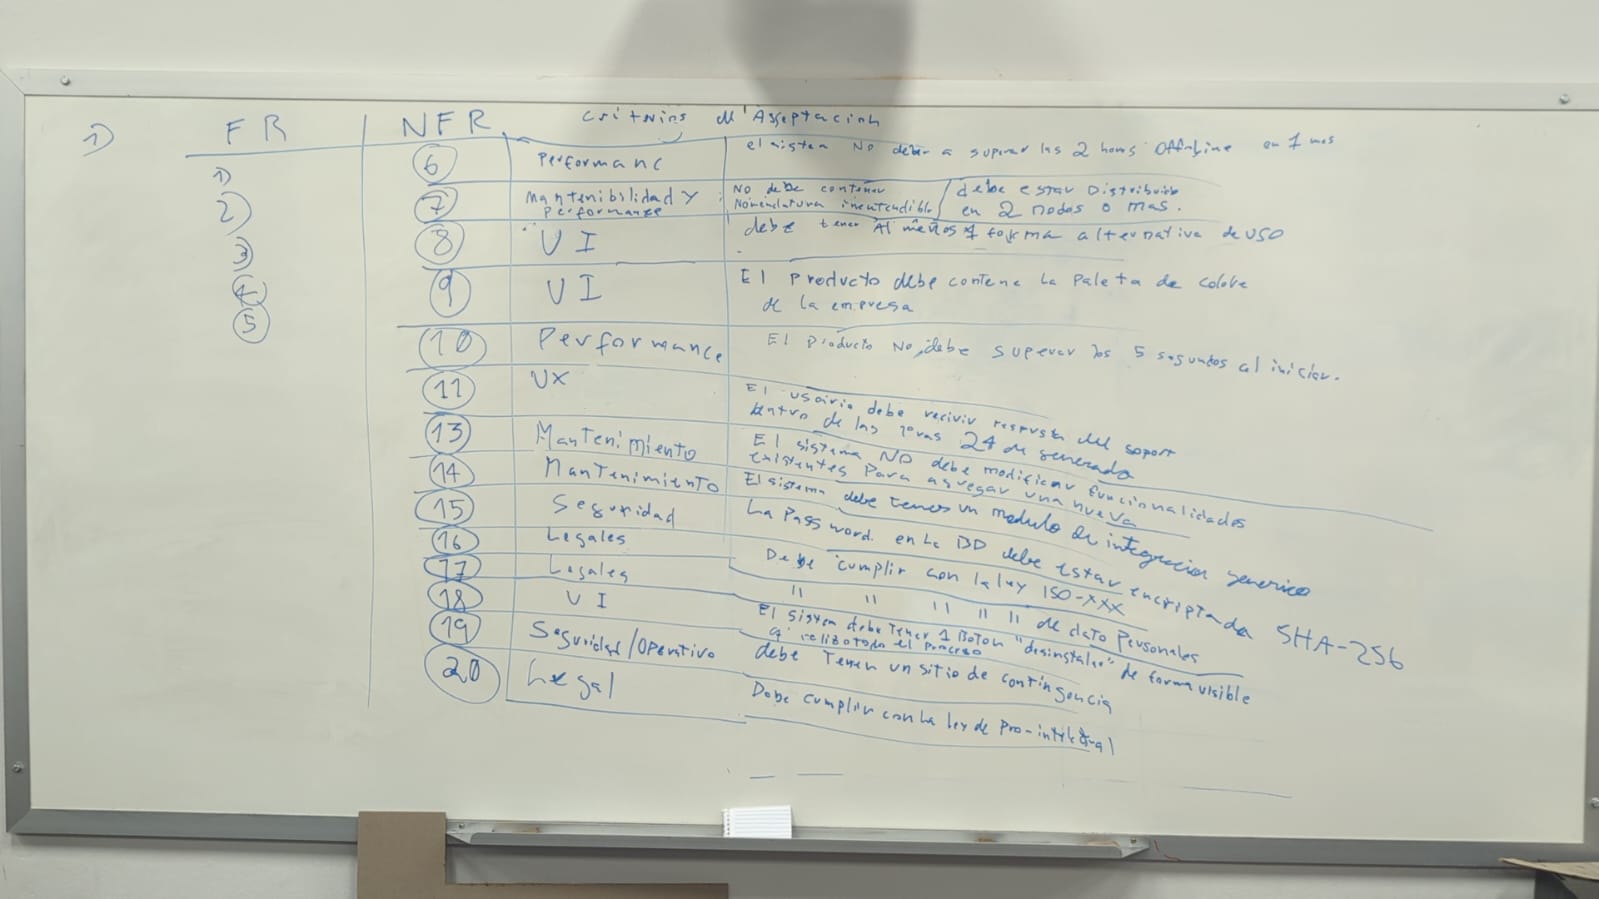 1) FR NFR Critnios d'Asseptacion
1)
2)
3)
4
5
6 Performanc el sisten No deber a superar las 2 horas Offline en 1 mes
7 Mantenibilidad Y performanze No debe contener Nomenclatura inentendible / debe estar Distribuido en 2 nodos o mas.
8 UI debe tener Al menos 1 forma alternativa de USO
9 UI El Producto debe contene La Paleta de colore
de la empresa
10 Performance El Producto No debe superar los 5 segundos al iniciar.
11 UX El usuario debe recivir respusta del soport
dentro de las horas 24 de generado
13 Mantenimiento El sistema NO debe modificar funcionalidades
existentes Para agregar una nueva
14 Mantenimiento El sistema debe tener un modulo de integracion generico
15 Seguridad La Password en la BD debe estar encriptada SHA-256
16 Legales Debe cumplir con la ley ISO-XXX
17 Legales " " " " " de dato Personales
18 UI El sistem debe tener 1 Boton "desinstalar" de forma visible
q' todo el proceso
19 Seguridad/Operativo debe Tener un sitio de contingencia
20 Legal Debe cumplir con la ley de Pro-intelectual